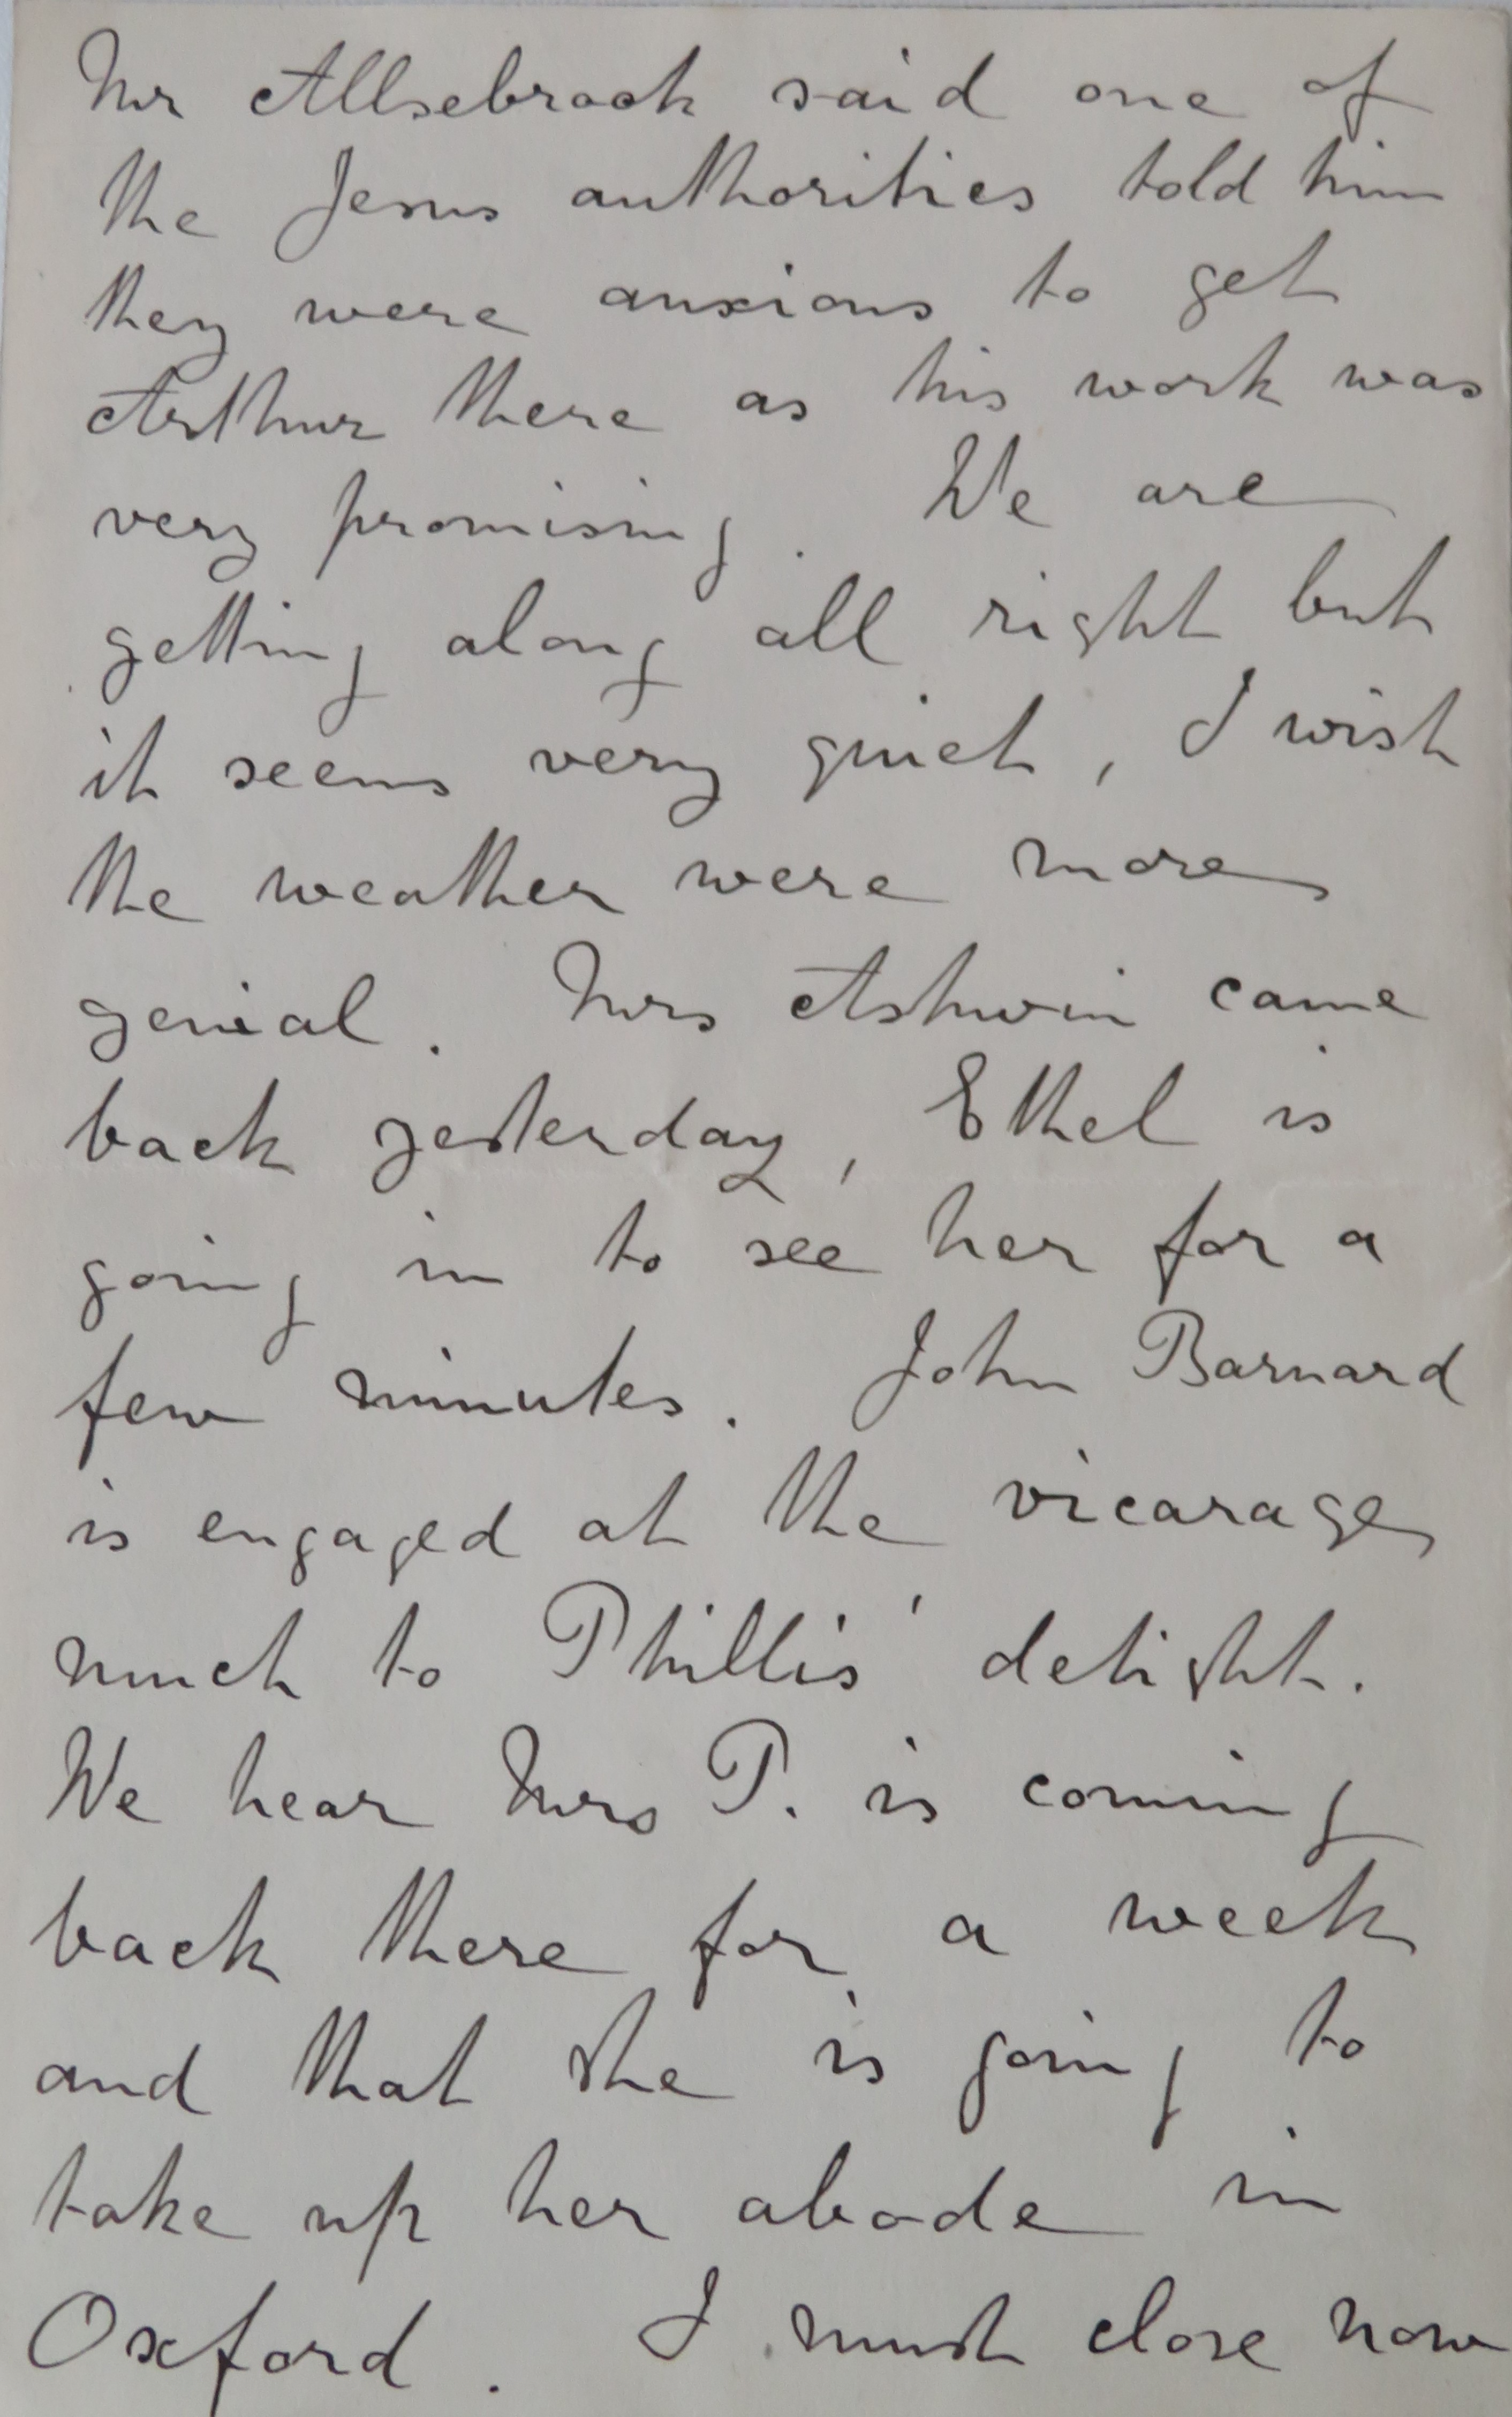 Mr Allsebrook said one of
the Jesus authorities told him
they were anxious to get
Arthur there as his work was
very promising. We are
getting along all right but
it seems very quiet, I wish
the weather were more
genial. Mrs Ashwin came
back yesterday, Ethel is
going in to see her for a
few minutes. John Barnard
is engaged at the vicarage
much to Phillis' delight.
We hear Mrs P. is coming
back there for a week
and that she is going to
take up her abode in
Oxford. I must close now